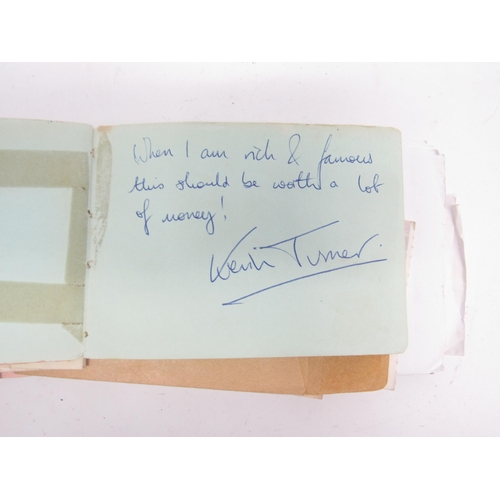 When I am rich & famous
this should be worth a lot
of money!
Kevin Turner.